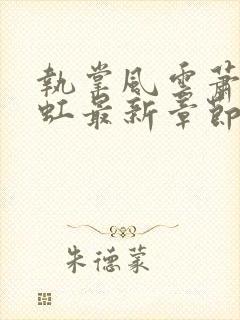 執掌風雲蕭
虹最新章節
朱德蒙